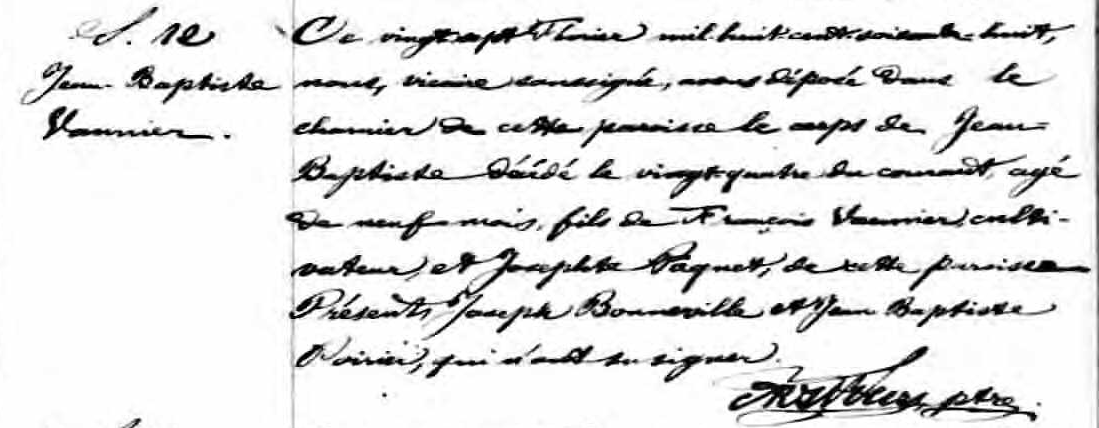 S. 12
Jean-Baptiste
Vannier.
Ce vingt-sept Février mil-huit-cent-soixante-huit,
nous, vicaire soussigné, avons déposé dans le
charnier de cette paroisse le corps de Jean-
Baptiste décédé le vingt-quatre du courant, agé
de neuf mois, fils de François Vannier, culti-
vateur, et Josephte Paquet, de cette paroisse
Présents Joseph Bonneville et Jean Baptiste
Poirier, qui n'ont su signer.
ptre.